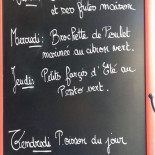 et ses frites maison
Mercredi : Brochette de Poulet
marinée au citron vert.
Jeudi : Petits farçis d'Eté au
Pistou vert.
Vendredi Poisson du jour